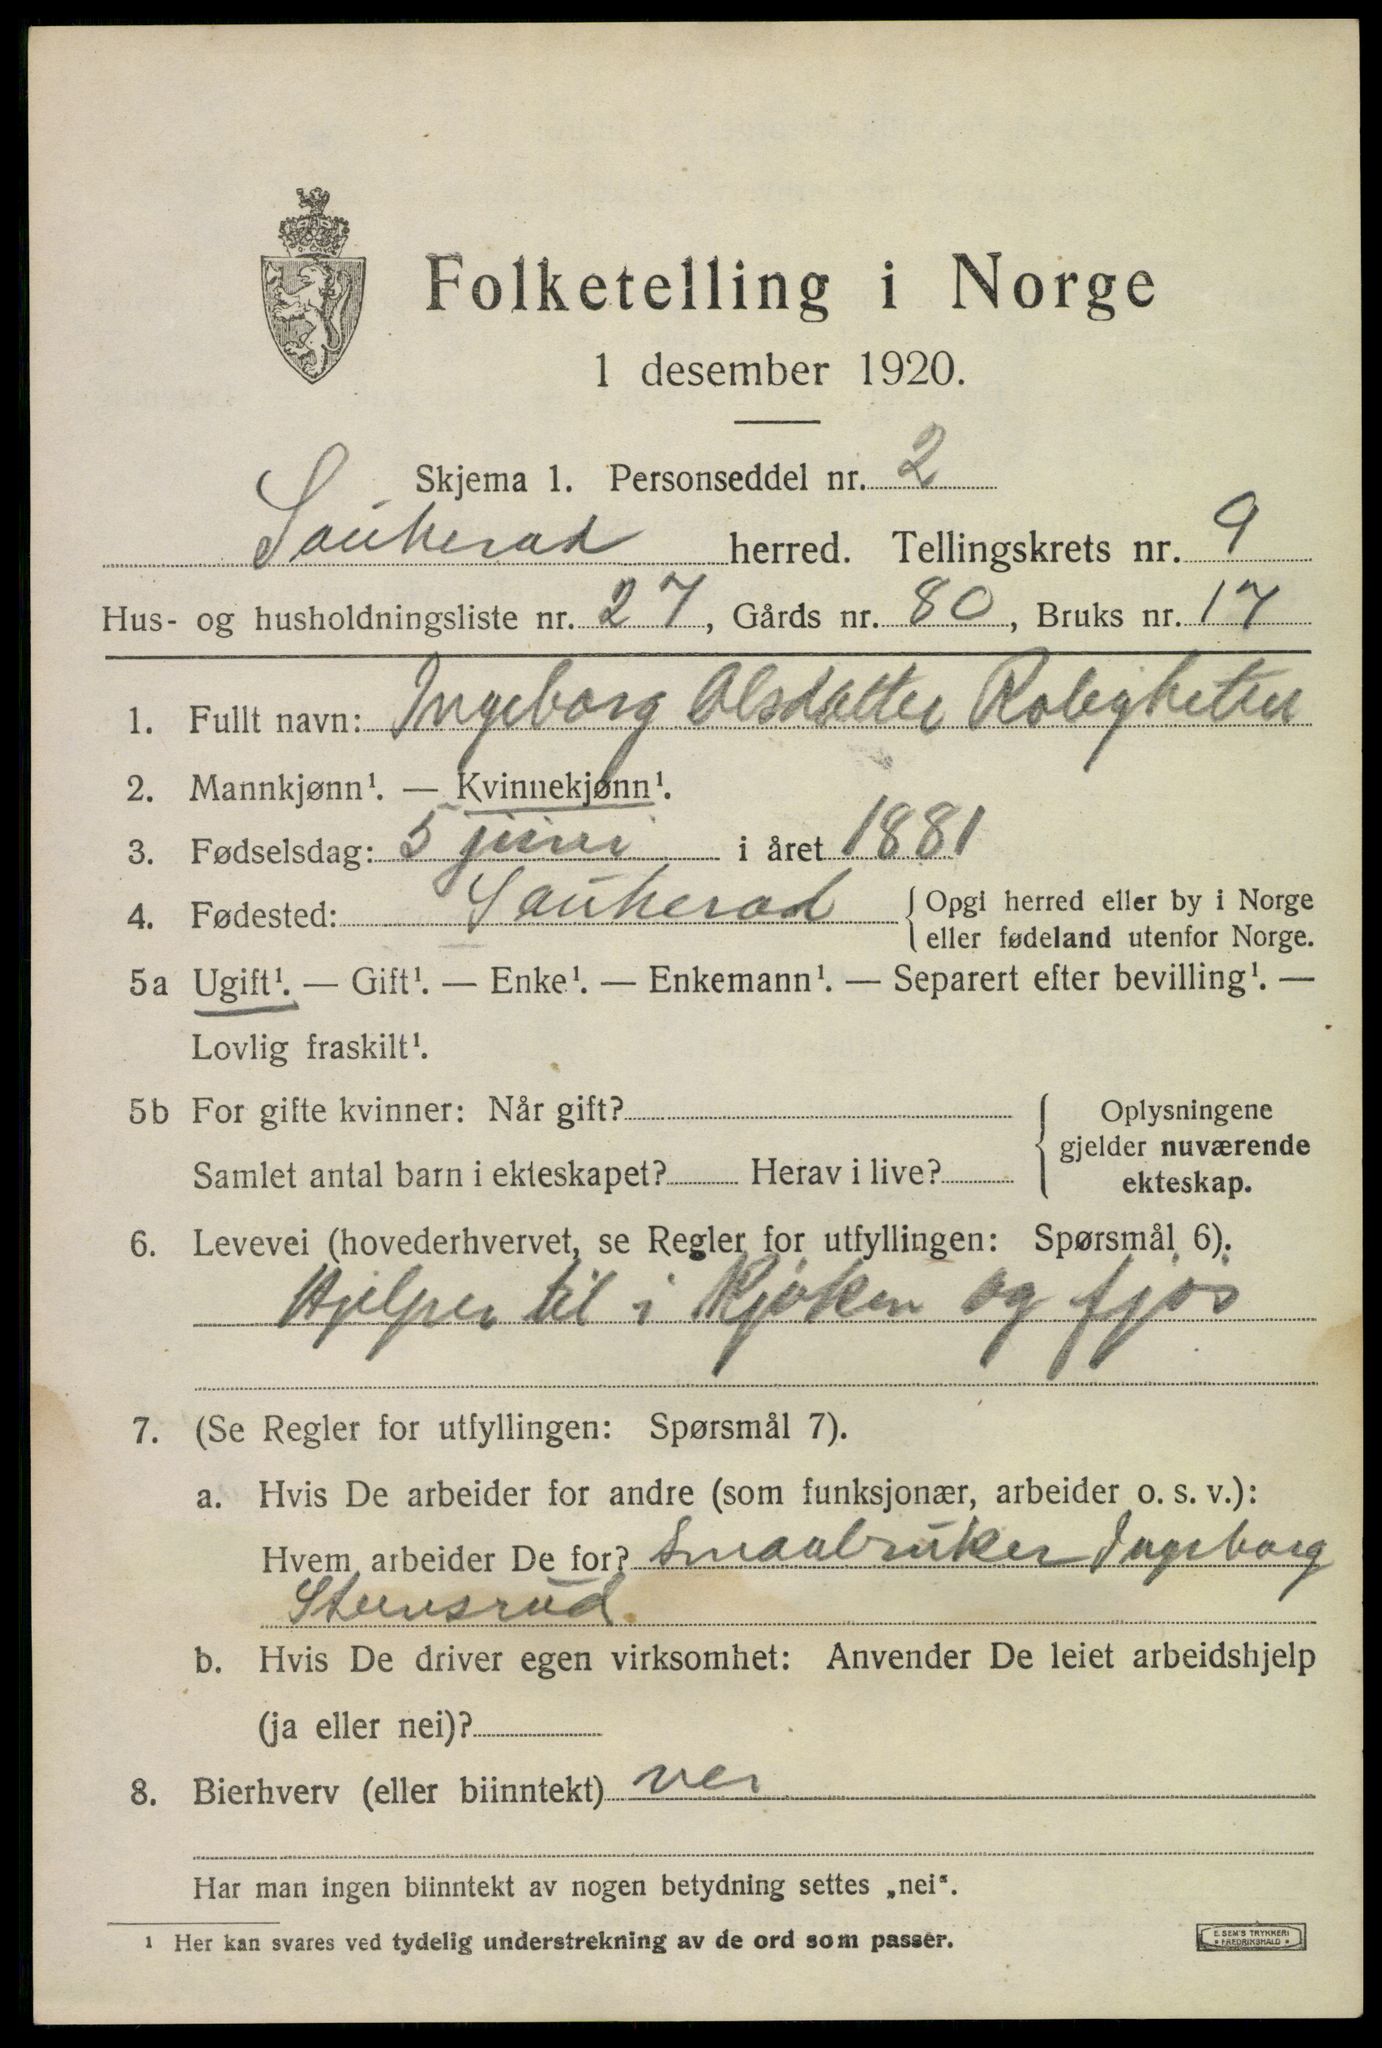 Folketelling i Norge
1 desember 1920.
Skjema 1. Personseddel nr. 2
Sauherad herred. Tellingskrets nr. 9
Hus- og husholdningsliste nr. 27, Gårds nr. 80, Bruks nr. 17
1. Fullt navn: Ingeborg Olsdatter Roligheten
2. Mannkjønn¹. — Kvinnekjønn¹.
3. Fødselsdag: 5 juni i året 1881
4. Fødested: Sauherad { Opgi herred eller by i Norge
eller fødeland utenfor Norge.
5a Ugift¹. — Gift¹. — Enke¹. — Enkemann¹. — Separert efter bevilling¹. —
Lovlig fraskilt¹.
5b For gifte kvinner: Når gift?
Samlet antal barn i ekteskapet? Herav i live?
Oplysningene
gjelder nuværende
ekteskap.
6. Levevei (hovederhvervet, se Regler for utfyllingen: Spørsmål 6).
Hjelper til i Kjøken og fjøs
7. (Se Regler for utfyllingen: Spørsmål 7).
a. Hvis De arbeider for andre (som funksjonær, arbeider o. s. v.):
Hvem arbeider De for? Smaabruker Ingeborg
Steensrud
b. Hvis De driver egen virksomhet: Anvender De leiet arbeidshjelp
(ja eller nei)?
8. Bierhverv (eller biinntekt) nei
Har man ingen biinntekt av nogen betydning settes „nei“.
¹ Her kan svares ved tydelig understrekning av de ord som passer.
E. SEM'S TRYKKERI
• FREDRIKSHALD •